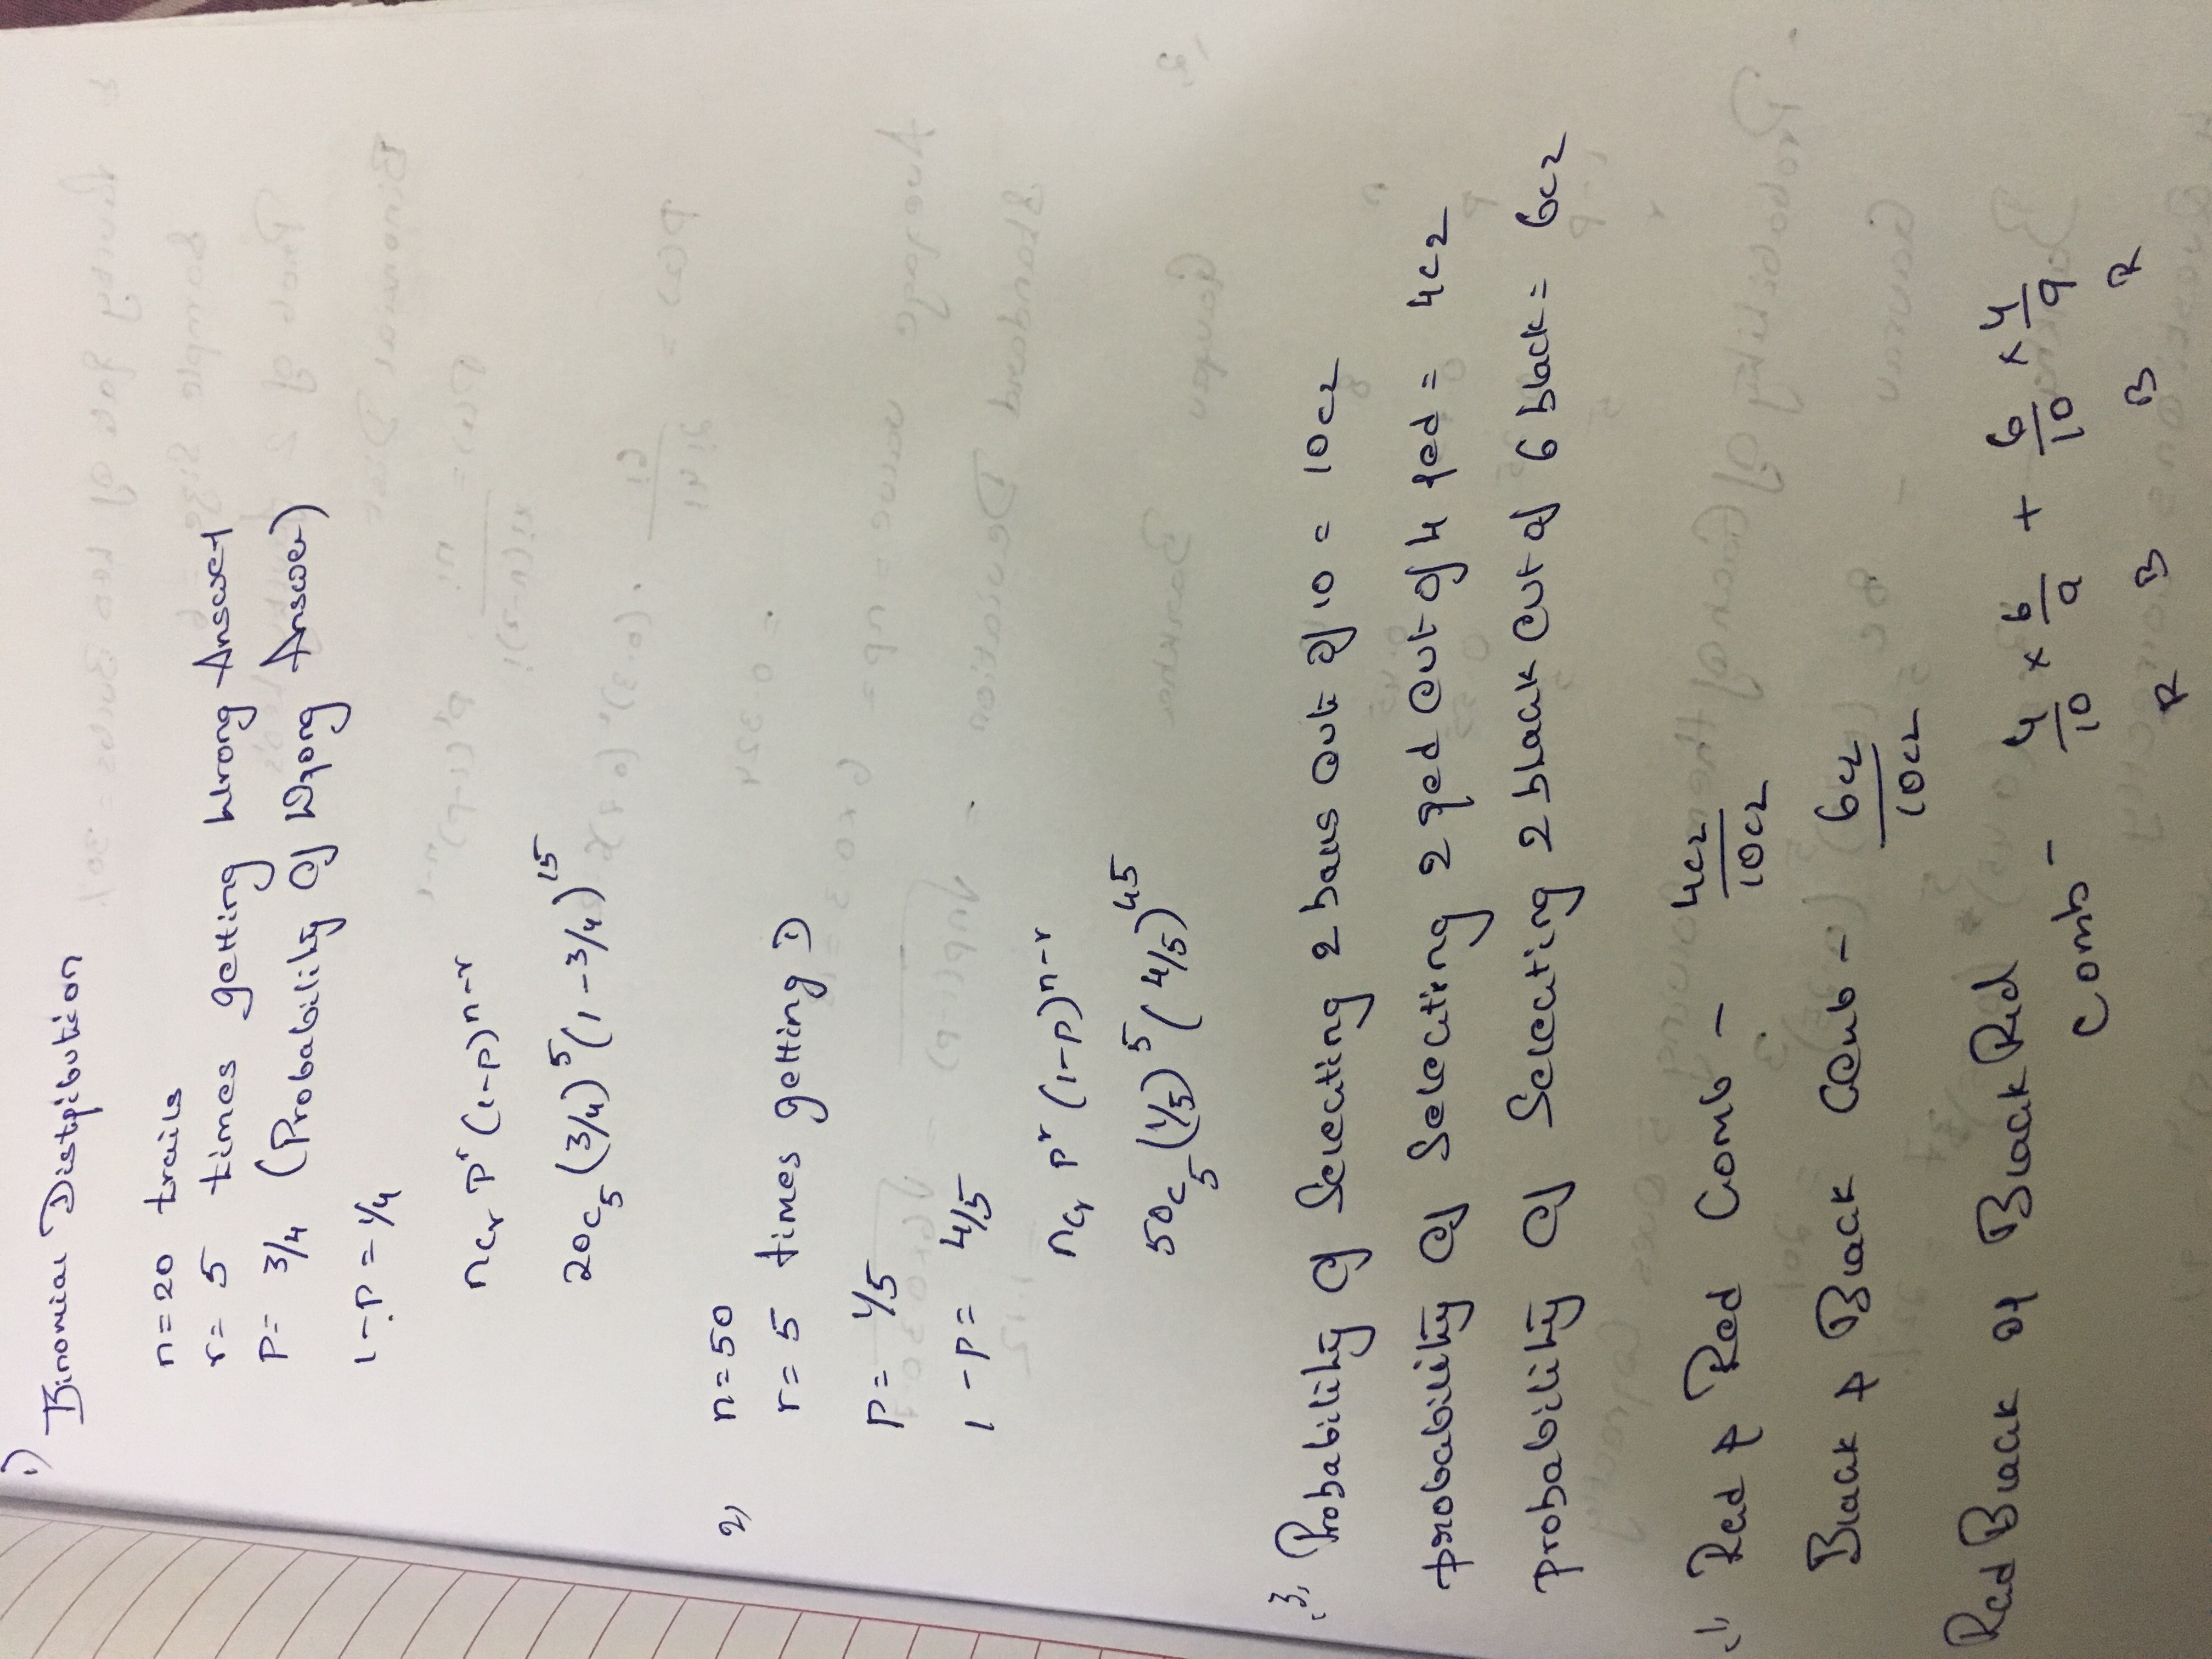 1)
Binomial Distribution
n=20 trails
r= 5 times getting Wrong Answer
P= 3/4 (Probability Of Wrong Answer)
1-P = 1/4
nCr P^r (1-p)^n-r
20C5 (3/4)^5 (1-3/4)^15
2) n=50
r= 5 times getting D
P= 1/5
1-P= 4/5
nCr P^r (1-p)^n-r
50C5 (1/5)^5 (4/5)^45
3, Probability Of Selecting 2 balls Out Of 10 = 10C2
probability Of Selecting 2 red Out Of 4 red = 4C2
probability Of Selecting 2 black Out of 6 black = 6C2
Red & Red Comb - 4C2/10C2
Black & Black Comb - 6C2/10C2
Red Black or Black Red
Comb - 4/10 x 6/9 + 6/10 x 4/9
R B B R